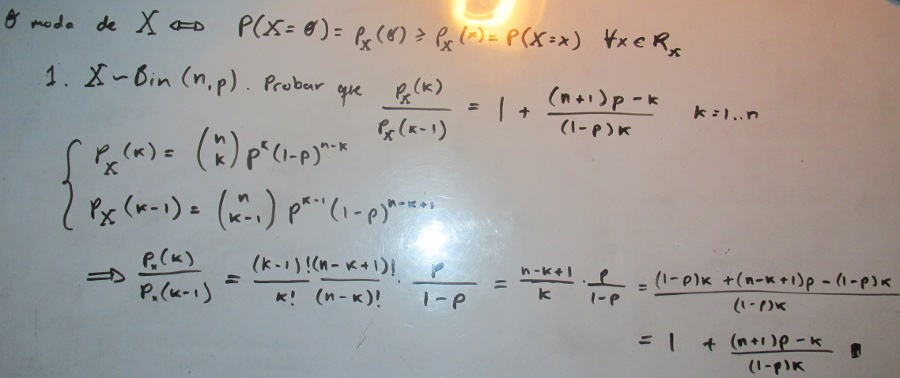 θ moda de X ⟺ P(X=θ) = P_X(θ) ≥ P_X(x) = P(X=x) ∀x∈R_X
1. X~Bin(n,p). Probar que P_X(k)/P_X(k-1) = 1 + ((n+1)p-k)/((1-p)k) k=1..n
{ P_X(k) = (n k) p^k (1-p)^(n-k)
P_X(k-1) = (n k-1) p^(k-1) (1-p)^(n-k+1)
⟹ P_X(k)/P_X(k-1) = (k-1)!/k! (n-k+1)!/(n-k)! · p/(1-p) = (n-k+1)/k · p/(1-p) = ((1-p)k+(n-k+1)p-(1-p)k)/((1-p)k)
= 1 + ((n+1)p-k)/((1-p)k) ∎